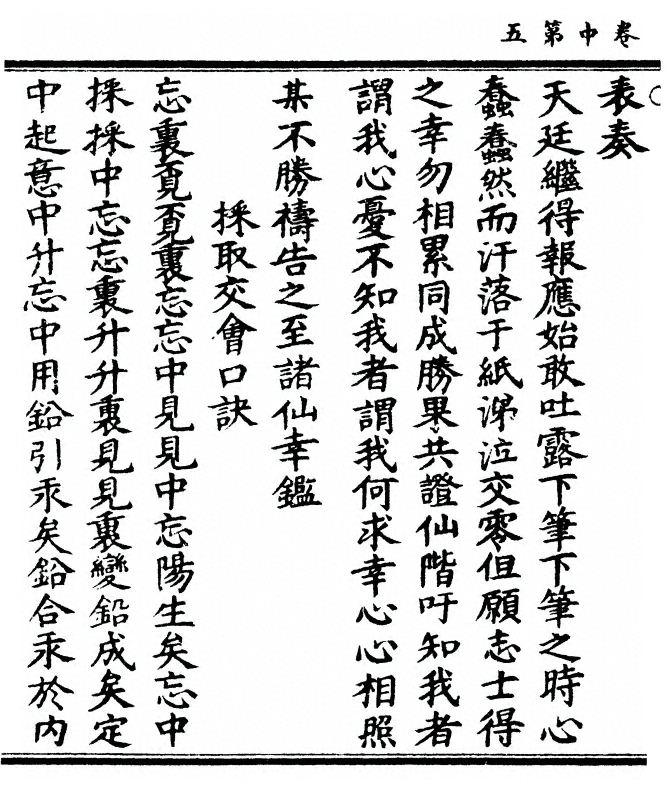 卷中第五
表奏
天廷繼得報應始敢吐露下筆下筆之時心
蠢蠢然而汗落于紙涕泣交零但願志士得
之幸勿相累同成勝果共證仙階吁知我者
謂我心憂不知我者謂我何求幸心心相照
某不勝禱告之至諸仙幸鑑
採取交會口訣
忘裏覓覓裏忘忘中見見中忘陽生矣忘中
採採中忘忘裏升升裏見見裏變鉛成矣定
中起意中升忘中用鉛引汞矣鉛合汞於內